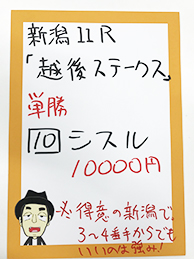 新潟11R
「越後ステークス」
単勝
10 シスル
10000円
※得意の新潟で、
3〜4番手からでも
いいのは強み！